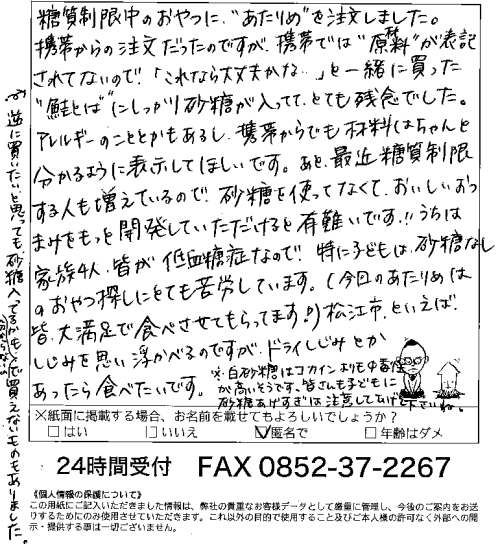 糖質制限中のおやつに、"あたりめ"を注文しました。
携帯からの注文だったのですが、携帯では"原材料"が表記
されてないので「これなら大丈夫かな…」と一緒に買った
"鮭とば"にしっかり砂糖が入ってて、とても残念でした。
アレルギーのこととかもあるし、携帯からでも材料はちゃんと
分かるように表示してほしいです。あと、最近糖質制限
する人も増えているので、砂糖を使ってなくて、おいしいおつ
まみをもっと開発していただけると有難いです!!うちは
家族4人、皆が低血糖症なので、特に子どもは、砂糖なし
のおやつ探しにとても苦労しています。(今回のあたりめは
皆、大満足で食べさせてもらってます!!)松江市、といえば、
しじみを思い浮かべるのですが、ドライしじみとか
あったら食べたいです。
※白砂糖はコカインよりも中毒性
が高いそうです。皆さんも子どもに
砂糖あげすぎは注意してあげて下さいね。
逆に買いたいと思っても砂糖入ってるかもで買えないものもありました。
分からないから
※紙面に掲載する場合、お名前を載せてもよろしいでしょうか?
□はい □いいえ ☑匿名で □年齢はダメ
24時間受付 FAX 0852-37-2267
《個人情報の保護について》
この用紙にご記入いただきました情報は、弊社の貴重なお客様データとして厳重に管理し、今後のご案内をお送
りするためにのみ使用させていただきます。これ以外の目的で使用すること及びご本人様の許可なく外部への開
示・提供する事は一切ございません。